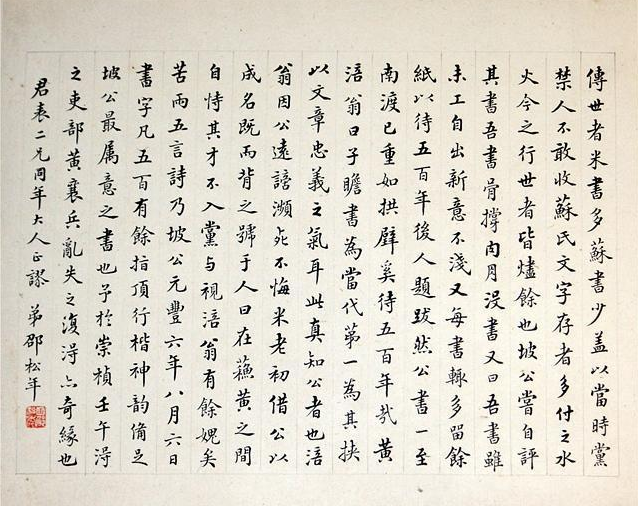 傳世者米書多蘇書少盖以當時黨
禁人不敢收蘇氏文字存者多付之水
火今之行世者皆燼餘也坡公嘗自評
其書吾書骨撐肉月没書又曰吾書雖
未工自出新意不淺又每書輒多留餘
紙以待五百年後人題跋然公書一至
南渡已重如拱璧奚待五百年哉黄
涪翁曰子瞻書為當代第一為其挾
以文章忠義之氣耳此真知公者也涪
翁因公遠謗瀕死不悔米老初借公以
成名既而背之號于人曰在蘓黄之間
自恃其才不入黨与視涪翁有餘媿矣
苦雨五言詩乃坡公元豐六年八月六日
書字凡五百有餘指頂行楷神韵備足
坡公最属意之書也予於崇禎壬午淂
之吏部黄襄兵亂失之復淂亦奇緣也
君表二兄同年大人正謬 弟邵松年